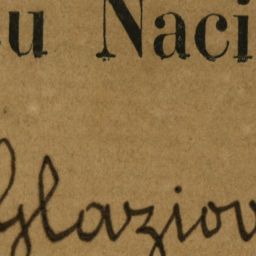 u Naci
Glaziov